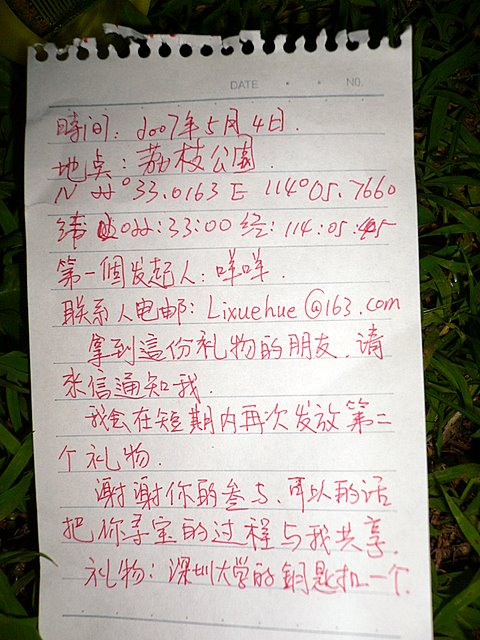 DATE · · NO.
時间：2007年5月4日.
地点：荔枝公園.
N 22°33.0163 E 114°05.7660
纬 022:33:00 经：114:05:45
第一個发起人：咩咩.
联系人电邮：Lixuehue@163.com
拿到這份礼物的朋友.请
来信通知我.
我会在短期内再次发放第二
个礼物.
谢谢你的参与、可以的话
把你寻宝的过程与我共享.
礼物：深圳大学的钥匙扣一个.